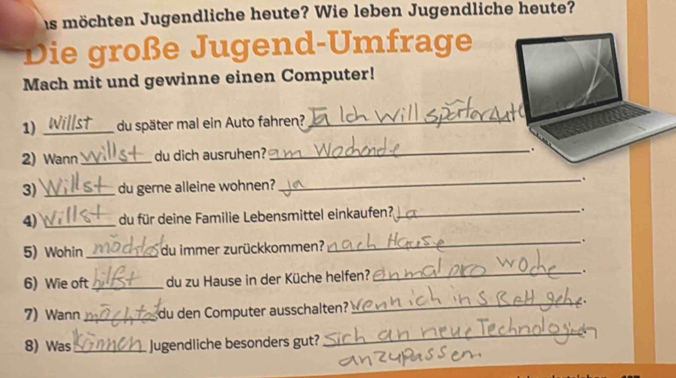 s möchten Jugendliche heute? Wie leben Jugendliche heute?
Die große Jugend-Umfrage
Mach mit und gewinne einen Computer!
1) Willst du später mal ein Auto fahren? Ja Ich will
2) Wann willst du dich ausruhen? am Wochende.
3) Willst du gerne alleine wohnen? ja.
4) Willst du für deine Familie Lebensmittel einkaufen? Ja.
5) Wohin du immer zurückkommen? nach Hause.
6) Wie oft hilfst du zu Hause in der Küche helfen? einmal pro woche.
7) Wann du den Computer ausschalten? wenn ich ins Bett gehe.
8) Was können Jugendliche besonders gut? sich an neue
anzupassen